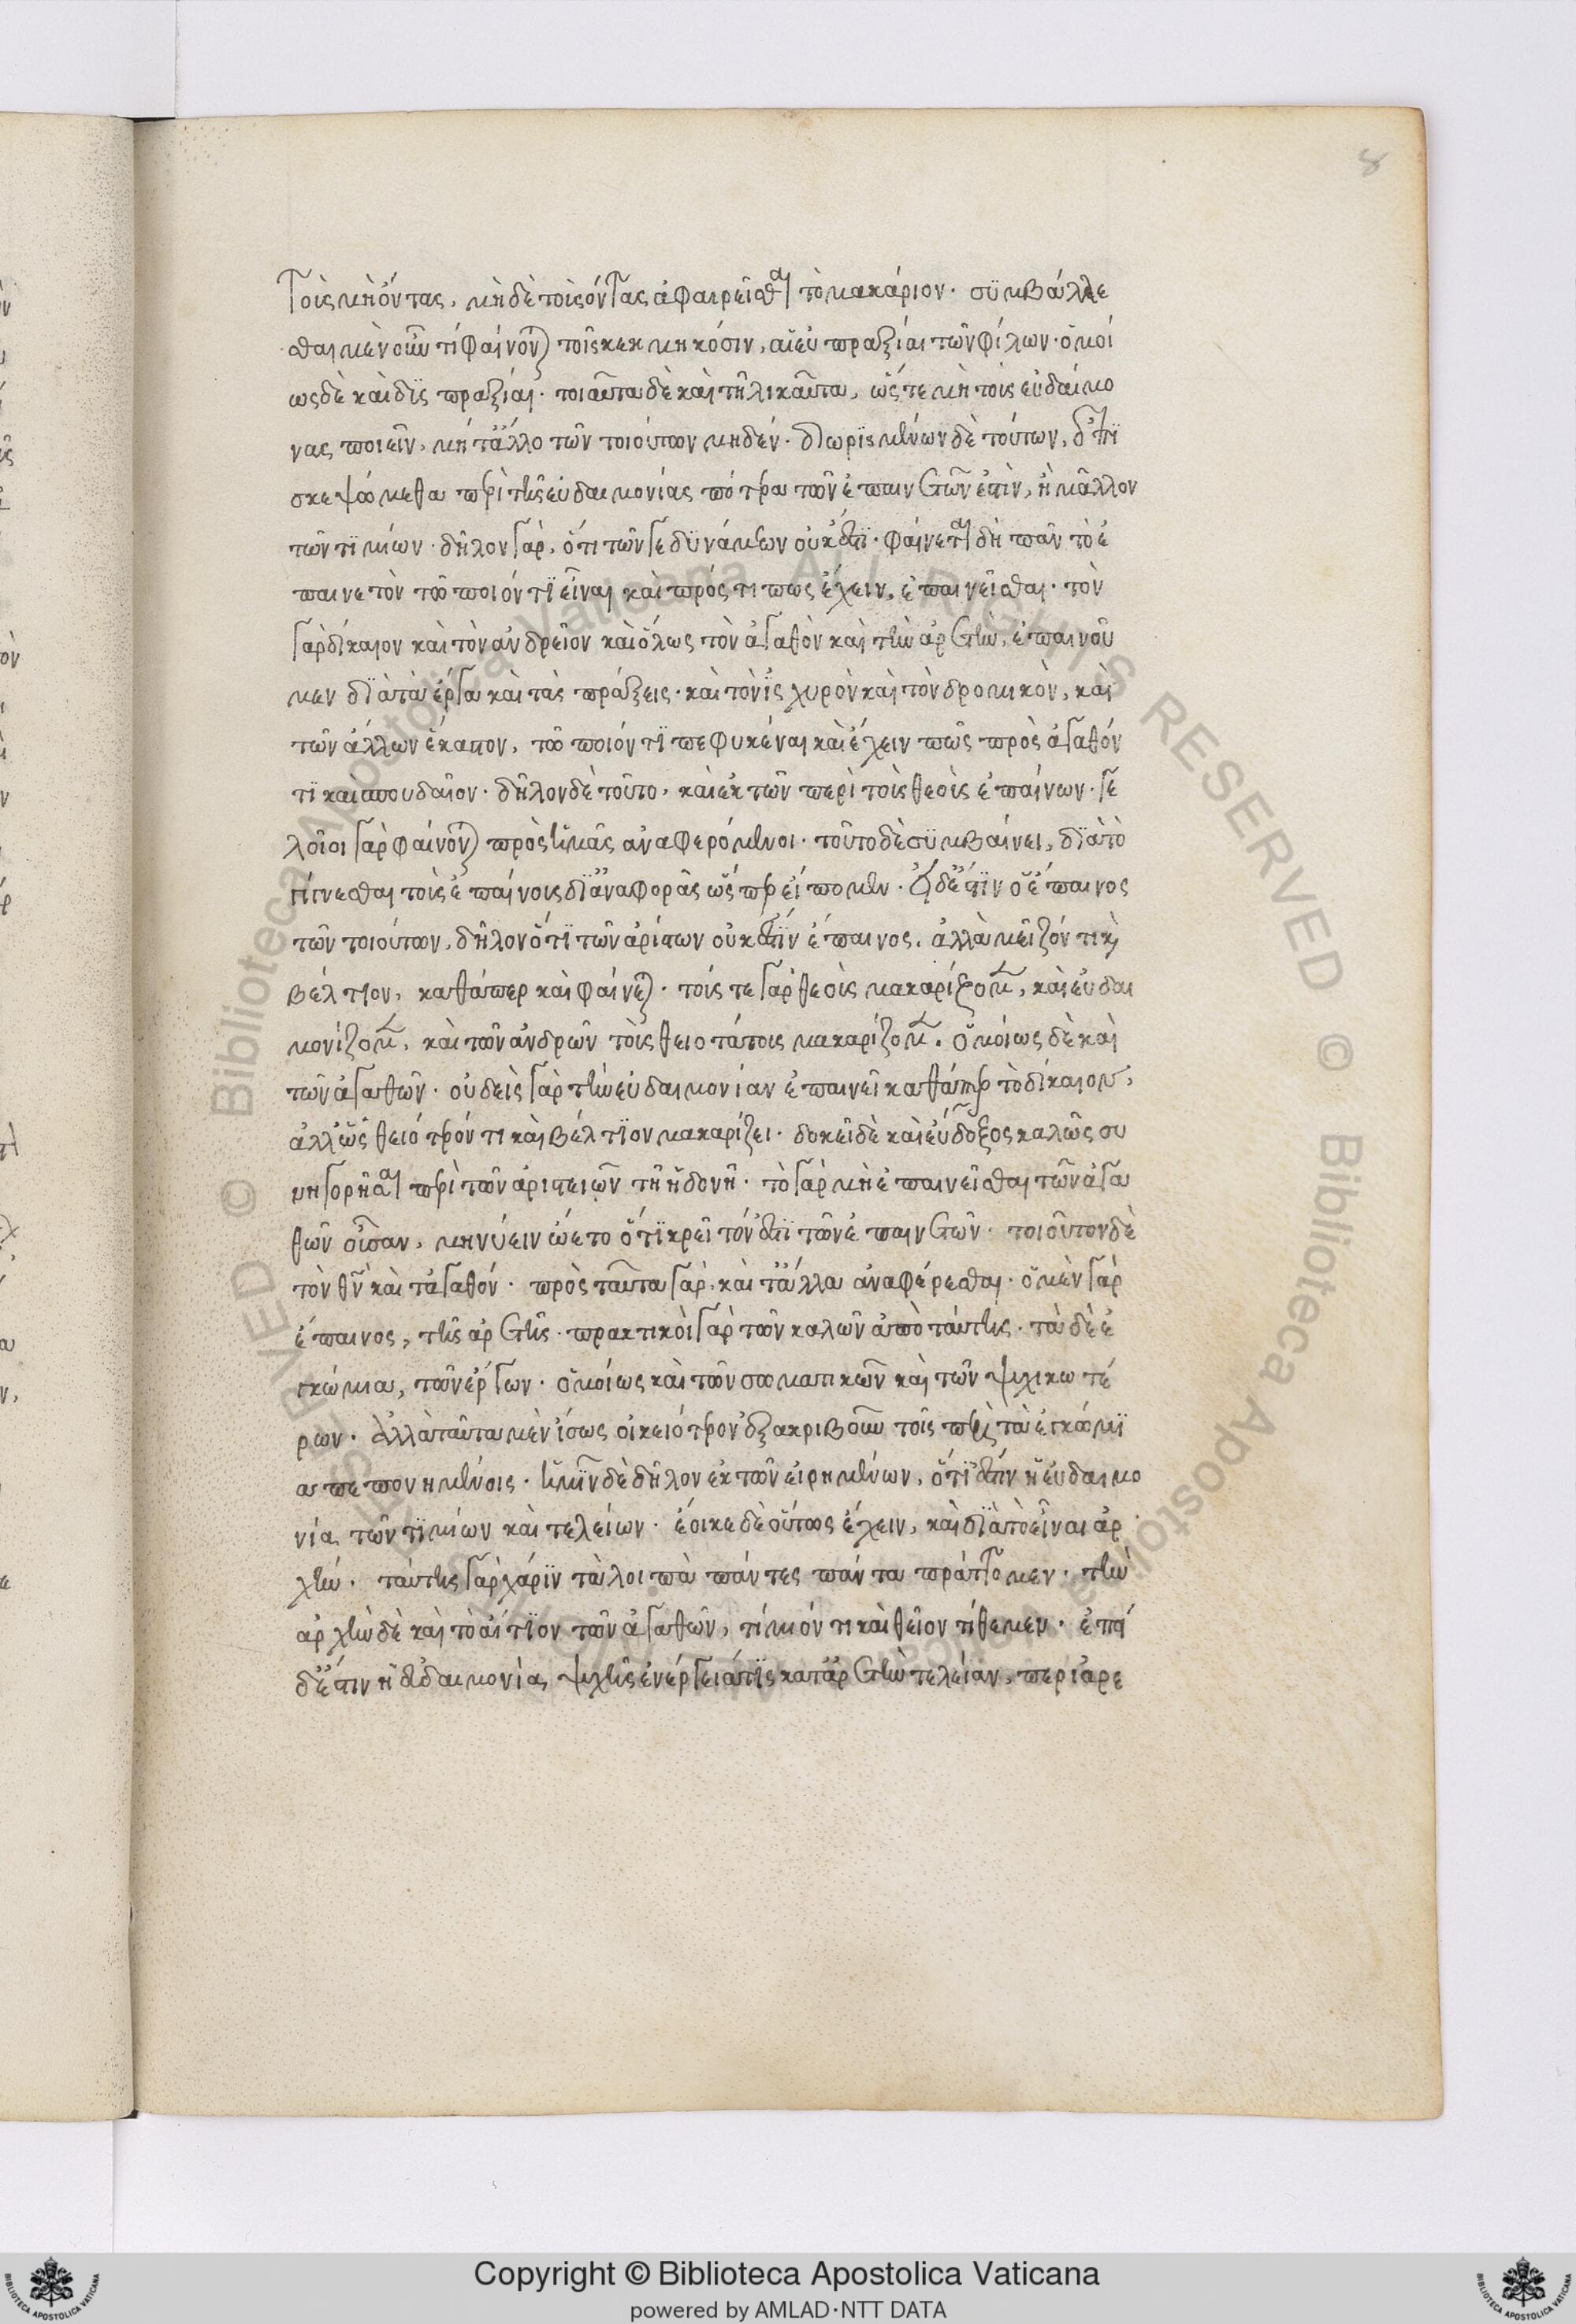 8
τοὺς μὴ ὄντας, μὴ δὲ τοὺς ὄντας ἀφαιρεῖσθαι τὸ μακάριον· συμβάλλε
σθαι μὲν οὖν τι φαίνονται τοῖς κεκμηκόσιν, αἱ εὐπραξίαι τῶν φίλων· ὁμοί
ως δὲ καὶ δυσπραξίαι· τοιαῦτα δὲ καὶ τηλικαῦτα, ὥστε μὴ τοὺς εὐδαίμο
νας ποιεῖν, μή τ' ἄλλο τῶν τοιούτων μηδέν· διωρισμένων δὲ τούτων, ἐπι
σκεψώμεθα περὶ τῆς εὐδαιμονίας πότερα τῶν ἐπαινετῶν ἐστὶν, ἢ μᾶλλον
τῶν τιμίων· δῆλον γὰρ, ὅτι τῶν γε δυνάμεων οὐκ ἔστι· φαίνεται δὴ πᾶν τὸ ἐ
παινετὸν τῶ ποιόν τι εἶναι καὶ πρός τι πως ἔχειν, ἐπαινεῖσθαι· τὸν
γὰρ δίκαιον καὶ τὸν ἀνδρεῖον καὶ ὅλως τὸν ἀγαθὸν καὶ τὴν ἀρετὴν, ἐπαινοῦ
μεν διὰ τὰ ἔργα καὶ τὰς πράξεις· καὶ τὸν ἰσχυρὸν καὶ τὸν δρομικὸν, καὶ
τῶν ἄλλων ἕκαστον, τῶ ποιόν τι πεφυκέναι καὶ ἔχειν πῶς πρὸς ἀγαθόν
τι καὶ σπουδαῖον· δῆλον δὲ τοῦτο, καὶ ἐκ τῶν περὶ τοὺς θεοὺς ἐπαίνων· γε
λοῖοι γὰρ φαίνονται πρὸς ἡμᾶς ἀναφερόμενοι· τοῦτο δὲ συμβαίνει, διὰ τὸ
γίγνεσθαι τοὺς ἐπαίνους δι' ἀναφορᾶς ὥσπερ εἴπομεν· εἰ δ' ἐστὶν ὁ ἔπαινος
τῶν τοιούτων, δῆλον ὅτι τῶν ἀρίστων οὐκ ἔστιν ἔπαινος, ἀλλὰ μεῖζόν τι καὶ
βέλτιον, καθάπερ καὶ φαίνεται· τούς τε γὰρ θεοὺς μακαρίζομεν, καὶ εὐδαι
μονίζομεν, καὶ τῶν ἀνδρῶν τοὺς θειοτάτους μακαρίζομεν. ὁμοίως δὲ καὶ
τῶν ἀγαθῶν· οὐδεὶς γὰρ τὴν εὐδαιμονίαν ἐπαινεῖ καθάπερ τὸ δίκαιον,
ἀλλ' ὡς θειότερόν τι καὶ βέλτιον μακαρίζει· δοκεῖ δὲ καὶ εὔδοξος καλῶς συ
νηγορῆσαι περὶ τῶν ἀριστειῶν τῆ ἡδονῆ· τὸ γὰρ μὴ ἐπαινεῖσθαι τῶν ἀγα
θῶν οὖσαν, μηνύειν ὤετο ὅτι κρεῖττόν ἐστι τῶν ἐπαινετῶν· τοιοῦτον δὲ
τὸν θεὸν καὶ τἀγαθόν· πρὸς ταῦτα γὰρ, καὶ τἄλλα ἀναφέρεσθαι· ὁ μὲν γὰρ
ἔπαινος, τῆς ἀρετῆς· πρακτικοὶ γὰρ τῶν καλῶν ἀπὸ ταύτης· τὰ δὲ ἐ
γκώμια, τῶν ἔργων· ὁμοίως καὶ τῶν σωματικῶν καὶ τῶν ψυχικωτέ
ρων· ἀλλὰ ταῦτα μὲν ἴσως οἰκειότερον ἐξακριβοῦν τοῖς περὶ τὰ ἐγκώμι
α πεπονημένοις· ἡμῖν δὲ δῆλον ἐκ τῶν εἰρημένων, ὅτι ἐστὶν ἡ εὐδαιμο
νία τῶν τιμίων καὶ τελείων· ἔοικε δὲ οὕτως ἔχειν, καὶ διὰ τὸ εἶναι ἀρ
χήν· ταύτης γὰρ χάριν τὰ λοιπὰ πάντες πάντα πράττομεν· τὴν
ἀρχὴν δὲ καὶ τὸ αἴτιον τῶν ἀγαθῶν, τίμιόν τι καὶ θεῖον τίθεμεν· ἐπεὶ
δ' ἔστιν ἡ εὐδαιμονία, ψυχῆς ἐνέργειά τις κατ' ἀρετὴν τελείαν, περὶ ἀρε
Copyright © Biblioteca Apostolica Vaticana
powered by AMLAD·NTT DATA